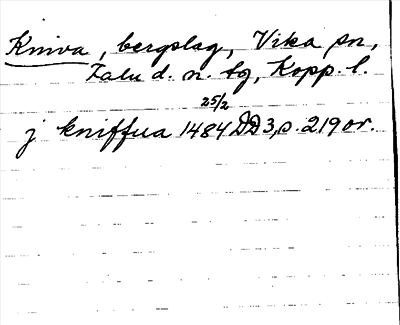 Kniva, bergslag, Vika sn,
Falu d. n. tg, Kopp. l.
25/2
j kniffua 1484 DD3, s. 219 or.